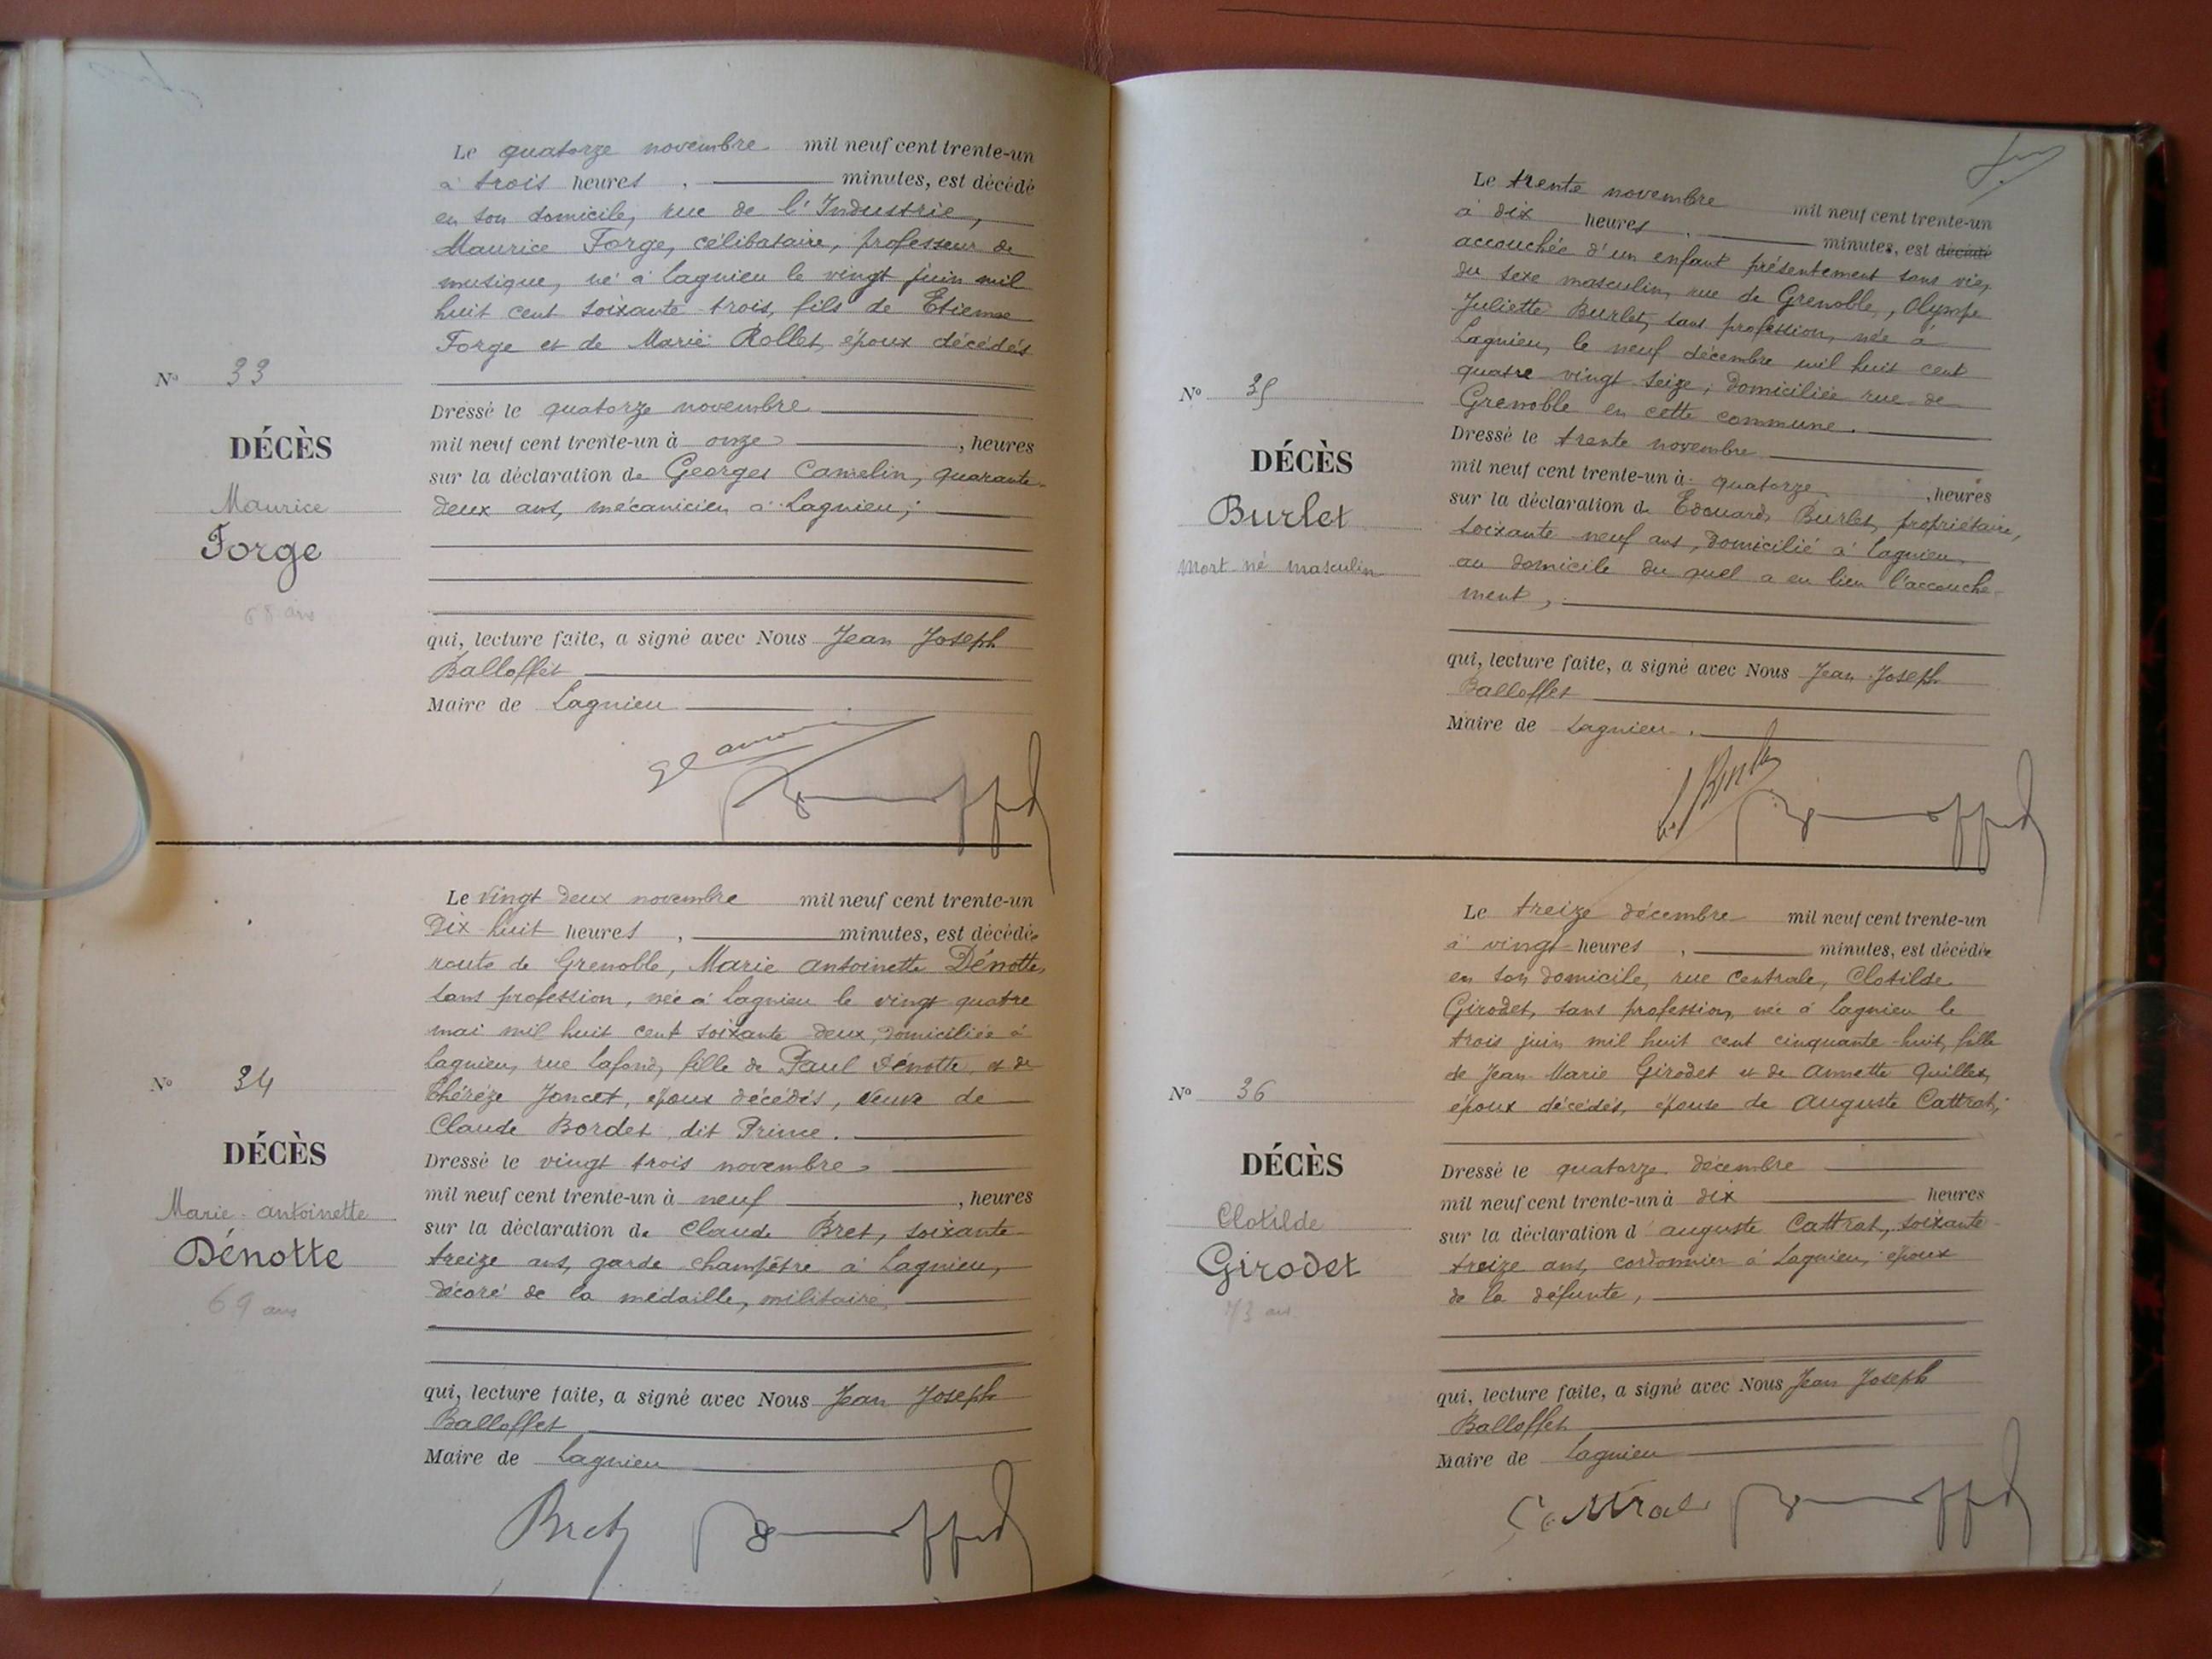 Le quatorze novembre mil neuf cent trente-un
à trois heures , minutes, est décédé
en son domicile, rue de l'Industrie,
Maurice Forge, célibataire, professeur de
musique, né à Lagnieu le vingt juin mil
huit cent soixante trois, fils de Etienne
Forge et de Marie Rollet, époux décédés
N° 33
DÉCÈS
Maurice
Forge
68 ans
Dressé le quatorze novembre
mil neuf cent trente-un à onze , heures
sur la déclaration de Georges Camelin, quarante
deux ans, mécanicien à Lagnieu;
qui, lecture faite, a signé avec Nous Jean Joseph
Balloffet
Maire de Lagnieu
Le vingt deux novembre mil neuf cent trente-un
Dix huit heures , minutes, est décédée
route de Grenoble, Marie Antoinette Dénotte,
sans profession, née à Lagnieu le vingt quatre
mai mil huit cent soixante deux, domiciliée à
Lagnieu, rue Lafond, fille de Paul Dénotte, et de
Thérèze Joncet, époux décédés, veuve de
Claude Bordet dit Prince.
N° 34
DÉCÈS
Marie-Antoinette
Dénotte
69 ans
Dressé le vingt trois novembre
mil neuf cent trente-un à neuf , heures
sur la déclaration de Claude Bret, soixante
treize ans, garde-champêtre à Lagnieu,
décoré de la médaille, militaire,
qui, lecture faite, a signé avec Nous Jean Joseph
Balloffet
Maire de Lagnieu
Bret
Le trente novembre mil neuf cent trente-un
à dix heures , minutes, est décédé
accouchée d'un enfant présentement sans vie,
du sexe masculin, rue de Grenoble, Olympe
Juliette Burlet, sans profession, née à
Lagnieu, le neuf décembre mil huit cent
quatre-vingt-seize, domiciliée rue de
Grenoble en cette commune.
N° 35
DÉCÈS
Burlet
Mort-né masculin
Dressé le trente novembre
mil neuf cent trente-un à quatorze , heures
sur la déclaration d. Edouard Burlet, propriétaire,
soixante neuf ans, domicilié à Lagnieu,
au domicile du quel a eu lieu l'accouche-
ment,
qui, lecture faite, a signé avec Nous Jean Joseph
Balloffet
Maire de Lagnieu.
Le treize décembre mil neuf cent trente-un
à vingt heures , minutes, est décédée
en son domicile, rue Centrale, Clotilde
Girodet, sans profession, née à Lagnieu le
trois juin mil huit cent cinquante-huit, fille
de Jean-Marie Girodet et de Annette Quillet,
époux décédés, épouse de Auguste Cattrat;
N° 36
DÉCÈS
Clotilde
Girodet
73 ans
Dressé le quatorze décembre
mil neuf cent trente-un à dix heures
sur la déclaration d'Auguste Cattrat, soixante-
treize ans, cordonnier à Lagnieu, époux
de la défunte,
qui, lecture faite, a signé avec Nous Jean Joseph
Balloffet
Maire de Lagnieu
Cattrat